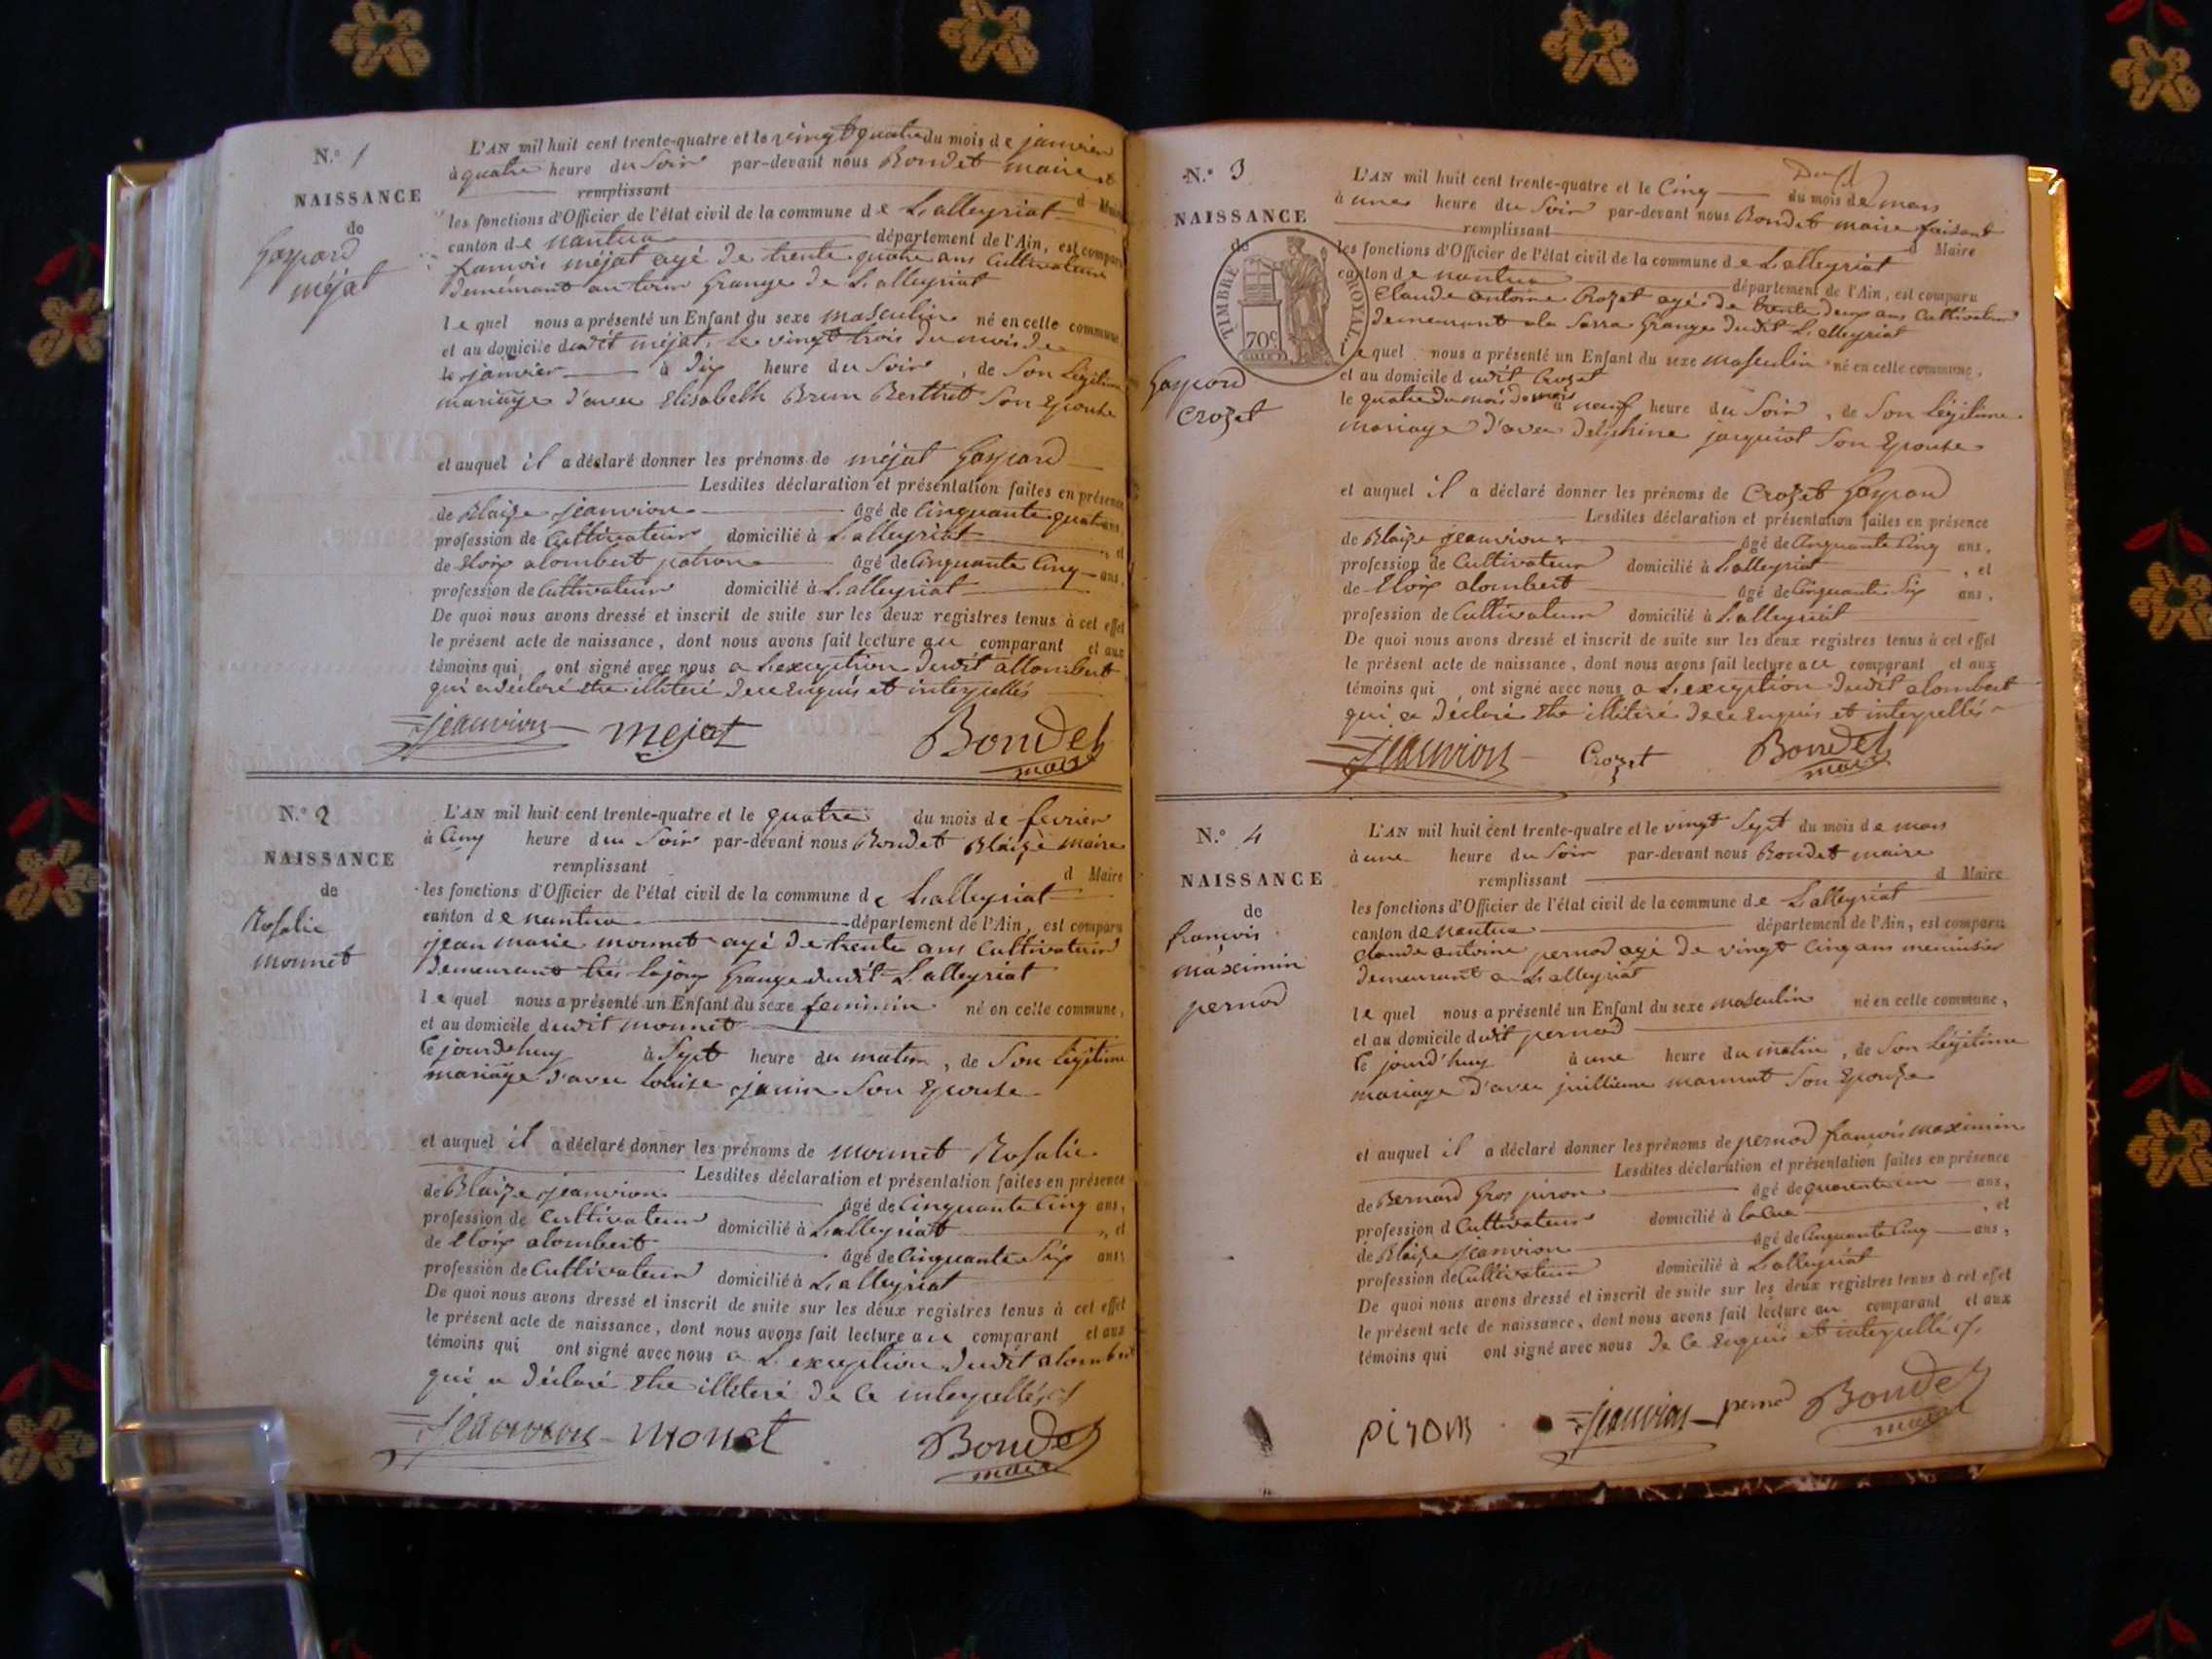 N.° 1
NAISSANCE
de
Gaspard
méjat
L'AN mil huit cent trente-quatre et le vingt quatre du mois de janvier
à quatre heure du Soir par-devant nous Bondet maire
remplissant d Maire
les fonctions d'Officier de l'état civil de la commune de Lalleyriat
canton de nantua département de l'Ain, est comparu
francois méjat agé de trente quatre ans Cultivateur
demeurant au Grange de Lalleyriat
le quel nous a présenté un Enfant du sexe masculin né en celle commune,
et au domicile dudit méjat, le vingt trois du mois de
janvier à dix heure du Soir, de Son Légitime
mariage d'avec Elisabeth Brun Berthet Son Epouse
et auquel il a déclaré donner les prénoms de méjat Gaspard
Lesdites déclaration et présentation faites en présence
de Blaize jeanvion âgé de Cinquante quatre ans,
profession de Cultivateur domicilié à Lalleyriat, et
de Eloix alombert patron âgé de Cinquante Cinq ans,
profession de Cultivateur domicilié à Lalleyriat
De quoi nous avons dressé et inscrit de suite sur les deux registres tenus à cet effet
le présent acte de naissance, dont nous avons fait lecture au comparant et aux
témoins qui ont signé avec nous a Lexception dudit allombert
qui a déclaré Etre illiteré de ce Enquis et interpellés
jeanvion mejat Bondet
maire
N.° 2
NAISSANCE
de
Rosalie
monnet
L'AN mil huit cent trente-quatre et le quatre du mois de fevrier
à Cinq heure du Soir par-devant nous Bondet Blaize maire
remplissant d Maire
les fonctions d'Officier de l'état civil de la commune de Lalleyriat
canton de nantua département de l'Ain, est comparu
jean marie monnet agé de trente ans Cultivateur
demeurant Grange dudit Lalleyriat
le quel nous a présenté un Enfant du sexe feminin né en celle commune,
et au domicile dudit monnet
le jourdhuy à Sept heure du matin, de Son Légitime
mariage d'avec Louise janin Son Epouse
et auquel il a déclaré donner les prénoms de monnet Rosalie
Lesdites déclaration et présentation faites en présence
de Blaize jeanvion âgé de Cinquante Cinq ans,
profession de Cultivateur domicilié à Lalleyriat, et
de Eloix alombert âgé de Cinquante Six ans
profession de Cultivateur domicilié à Lalleyriat
De quoi nous avons dressé et inscrit de suite sur les deux registres tenus à cet effet
le présent acte de naissance, dont nous avons fait lecture au comparant et aux
témoins qui ont signé avec nous a L'exception dudit alombert
qui a déclaré Etre illiteré de ce interpellés
jeanvion monet Bondet
maire
N.° 3
NAISSANCE
de
TIMBRE ROYAL
70c
Gaspard
Crozet
L'AN mil huit cent trente-quatre et le Cinq du mois de mars
à une heure du Soir par-devant nous Bondet maire faisant
remplissant d Maire
les fonctions d'Officier de l'état civil de la commune de Lalleyriat
canton de nantua département de l'Ain, est comparu
Claude antoine Crozet agé de trente deux ans Cultivateur
demeurant a la Sarra Grange dudit Lalleyriat
le quel nous a présenté un Enfant du sexe masculin né en celle commune,
et au domicile dudit Crozet
le quatre du mois de mars à neuf heure du Soir, de Son Légitime
mariage d'avec delphine jacquiot Son Epouse
et auquel il a déclaré donner les prénoms de Crozet Gaspard
Lesdites déclaration et présentation faites en présence
de Blaize jeanvion âgé de Cinquante Cinq ans,
profession de Cultivateur domicilié à Lalleyriat, et
de Eloix alombert âgé de Cinquante Six ans,
profession de Cultivateur domicilié à Lalleyriat
De quoi nous avons dressé et inscrit de suite sur les deux registres tenus à cet effet
le présent acte de naissance, dont nous avons fait lecture au comparant et aux
témoins qui, ont signé avec nous a L'exception dudit alombert
qui a déclaré Etre illiteré de ce Enquis et interpellés
jeanvion Crozet Bondet
maire
N.° 4
NAISSANCE
de
francois
maximin
pernod
L'AN mil huit cent trente-quatre et le vingt Sept du mois de mars
à une heure du Soir par-devant nous Bondet maire
remplissant d Maire
les fonctions d'Officier de l'état civil de la commune de Lalleyriat
canton de nantua département de l'Ain, est comparu
Claude antoine pernod agé de vingt Cinq ans menuisier
demeurant a Lalleyriat
le quel nous a présenté un Enfant du sexe masculin né en celle commune,
et au domicile dudit pernod
le jourd'huy à une heure du matin, de Son Légitime
mariage d'avec jullienne marmet Son Epouse
et auquel il a déclaré donner les prénoms de pernod francois maximin
Lesdites déclaration et présentation faites en présence
de Bernard Gros piron âgé de quarante un ans,
profession d Cultivateur domicilié à , et
de Blaize jeanvion âgé de Cinquante Cinq ans,
profession de Cultivateur domicilié à Lalleyriat
De quoi nous avons dressé et inscrit de suite sur les deux registres tenus à cet effet
le présent acte de naissance, dont nous avons fait lecture au comparant et aux
témoins qui ont signé avec nous de ce Enquis et interpellés
piron jeanvion pernod Bondet
maire